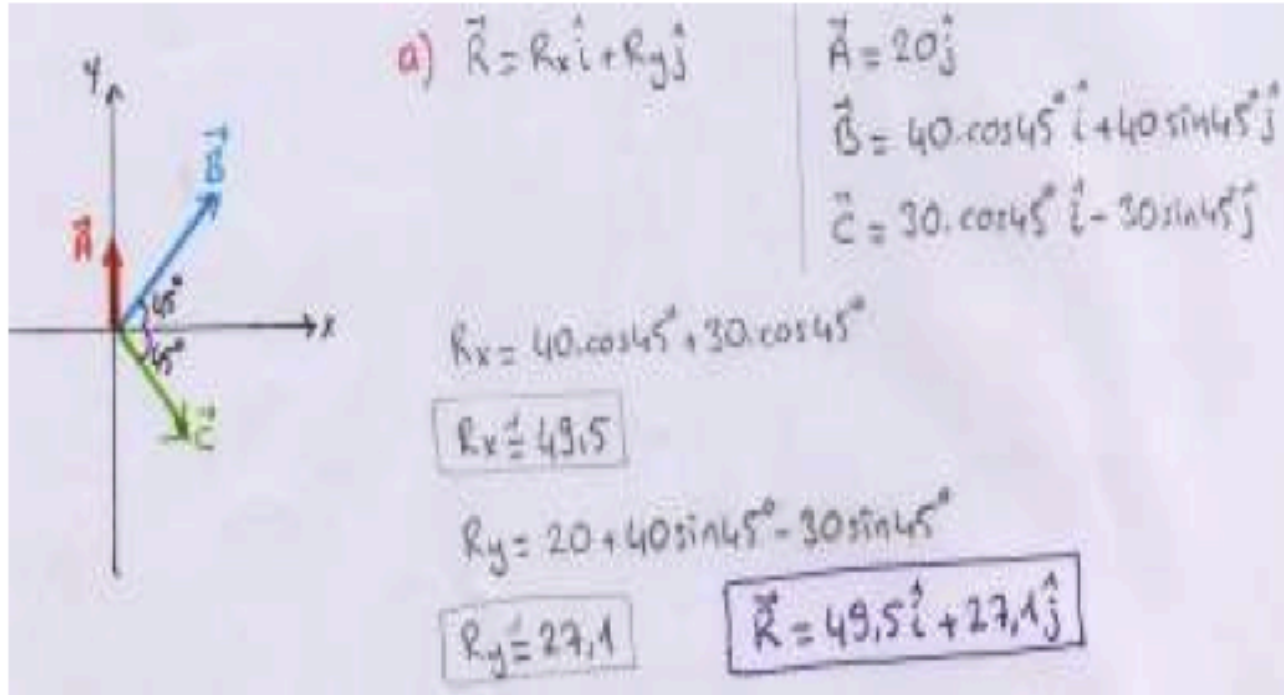 y
B⃗
A⃗
45°
x
45°
C⃗
a) R⃗ = Rxî + Ryĵ
A⃗ = 20ĵ
B⃗ = 40.cos45° î + 40sin45°ĵ
C⃗ = 30.cos45° î - 30sin45°ĵ
Rx = 40.cos45° + 30.cos45°
Rx ≐ 49,5
Ry = 20 + 40sin45° - 30sin45°
Ry ≐ 27,1
R⃗ = 49,5î + 27,1ĵ